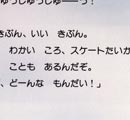 ゅっしゅーっ！
きぶん、いい きぶん。
わかい ころ、スケートたいか
ことも あるんだぞ。
、どーんな もんだい！」